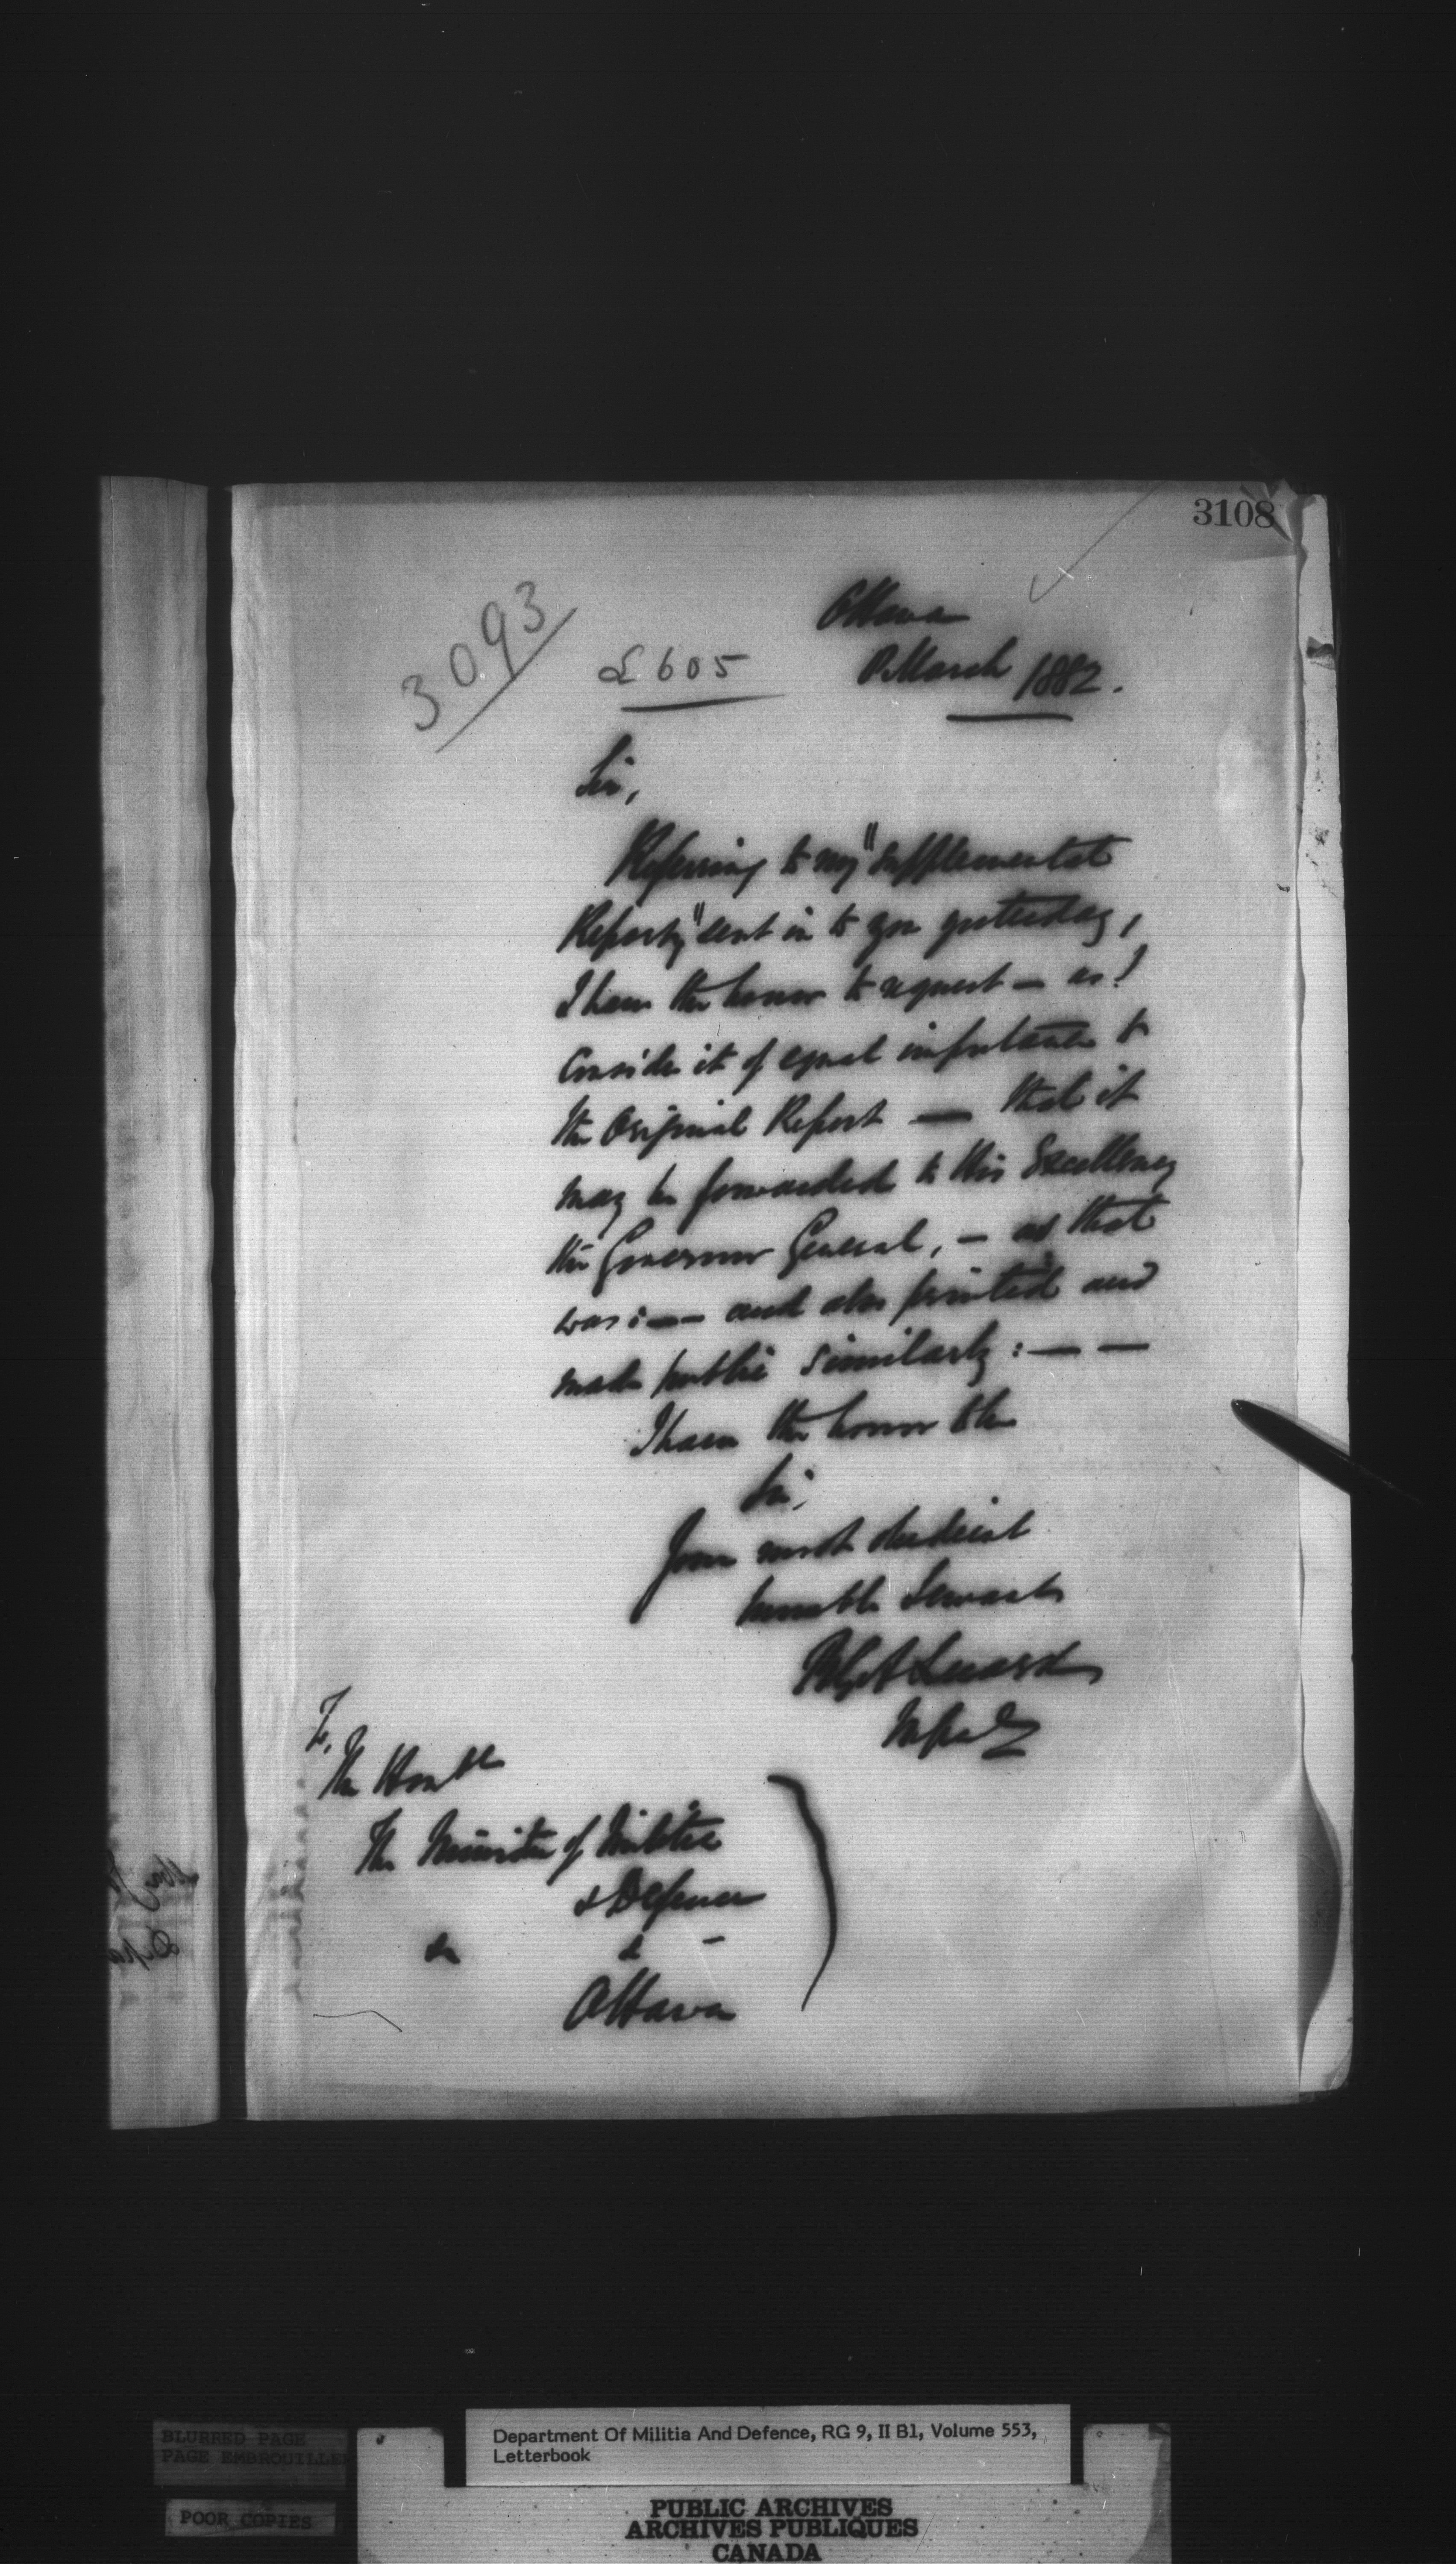 3108
3093
£605
Ottawa
March 1882.
Sir,
Referring to my "Supplemental
Report," sent in to you yesterday,
I have the honor to request — as I
consider it of equal importance to
the Original Report — that it
may be forwarded to His Excellency
the Governor General, — as that
was: — — and also printed and
made public similarly: — —
I have the honor to be
Sir,
Your most obedient
humble Servant
To,
The Honble
The Minister of Militia
& Defence
&c & -
Ottawa
BLURRED PAGE
PAGE EMBROUILLEE
POOR COPIES
Department Of Militia And Defence, RG 9, II B1, Volume 553,
Letterbook
PUBLIC ARCHIVES
ARCHIVES PUBLIQUES
CANADA